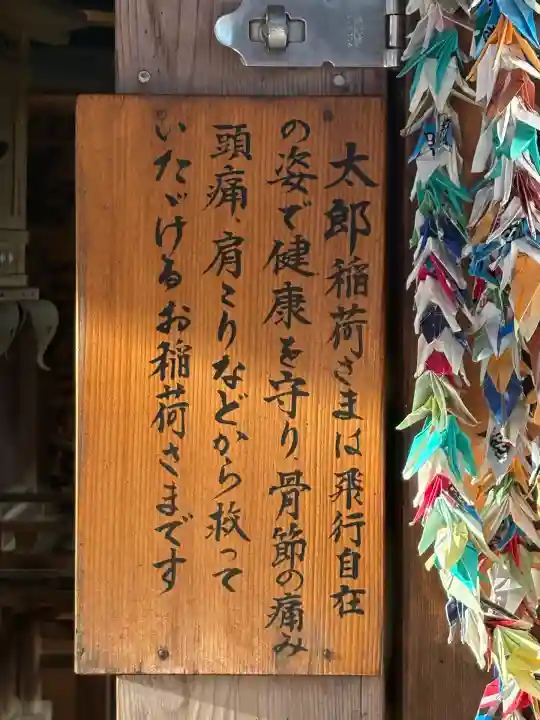 太郎稲荷さまは飛行自在
の姿で健康を守り、骨節の痛み
頭痛、肩こりなどから救って
いたゞけるお稲荷さまです